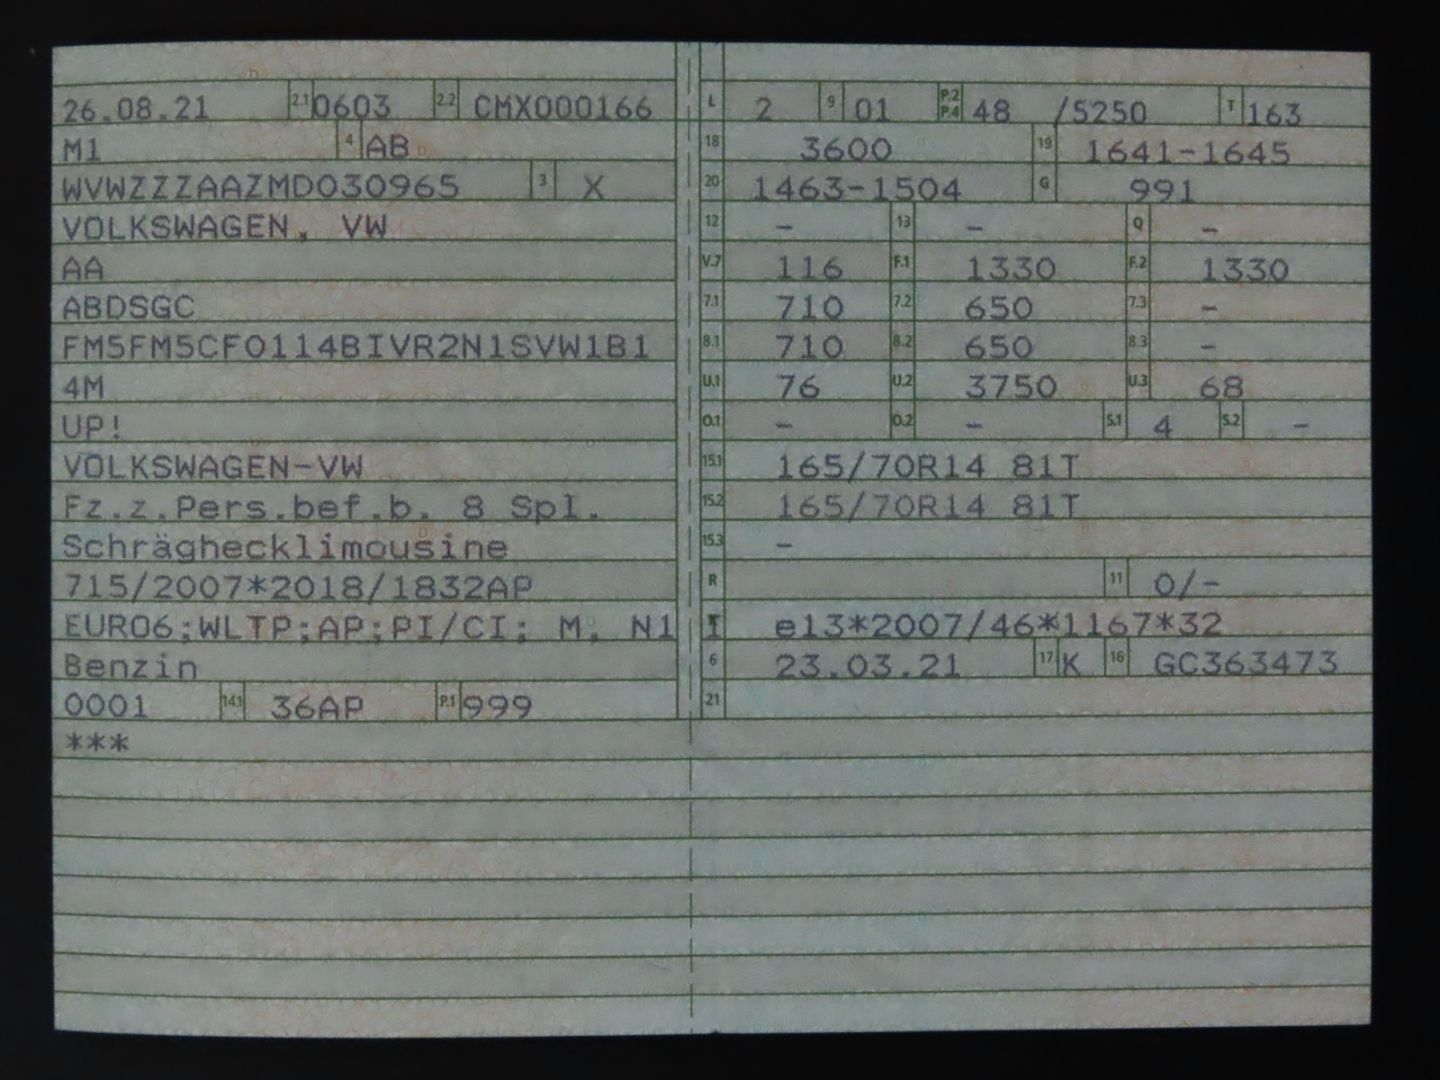 26.08.21 2.1 0603 2.2 CMX000166
M1 4 AB
WVWZZZAAZMD030965 3 X
VOLKSWAGEN, VW
AA
ABDSGC
FM5FM5CF0114BIVR2N1SVW1B1
4M
UP!
VOLKSWAGEN-VW
Fz.z.Pers.bef.b. 8 Spl.
Schräghecklimousine
715/2007*2018/1832AP
EURO6;WLTP;AP;PI/CI; M, N1 I
Benzin
0001 14.1 36AP P.1 999
***
L 2 9 01 P.2 P.4 48 /5250 T 163
18 3600 19 1641-1645
20 1463-1504 G 991
12 - 13 - Q -
V.7 116 F.1 1330 F.2 1330
7.1 710 7.2 650 7.3 -
8.1 710 8.2 650 8.3 -
U.1 76 U.2 3750 U.3 68
O.1 - O.2 - S.1 4 S.2 -
15.1 165/70R14 81T
15.2 165/70R14 81T
15.3 -
R 11 0/-
e13*2007/46*1167*32
6 23.03.21 17 K 16 GC363473
21